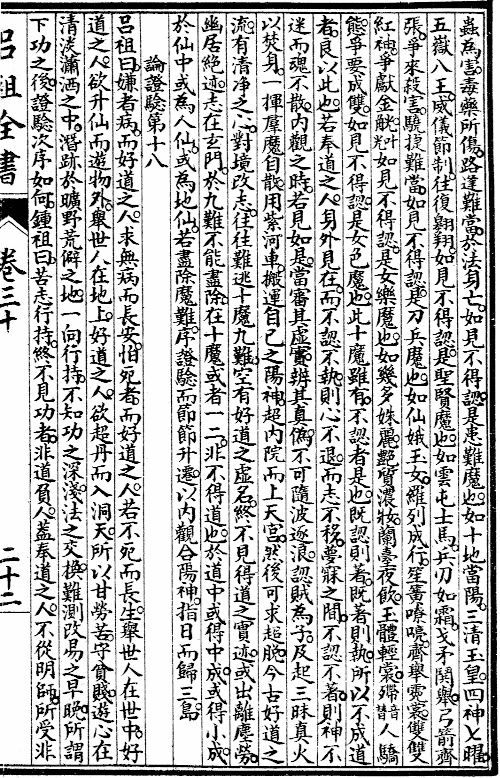 蟲為害毒藥所傷路逢難當於法身亡如見不得認是患難魔也如十地當陽三清玉皇四神七曜
五嶽八王威儀節制往復翱翔如見不得認是聖賢魔也如雲屯士馬兵刃如霜戈矛鬪舉弓箭齊
張爭來殺害驍捷難當如見不得認是刀兵魔也如仙娥玉女羅列成行笙簧嘹喨齊舉霓裳雙雙
紅袖爭獻金觥如見不得認是女樂魔也如幾多姝麗艷質濃妝蘭臺夜飲玉體輕裳殢人驕
態爭要成雙如見不得認是女色魔也此十魔雖有不認者是也既認則着既着則執所以不成道
者良以此也若奉道之人身外見在而不認不執則心不退而志不移夢寐之間不認不着則神不
迷而魂不散內觀之時若見如是當審其虛實辨其真偽不可隨波逐浪認賊為子及起三昧真火
以焚身一揮羣魔自散用紫河車搬運自己之陽神超內院而上天宮然後可求超脫今古好道之
流有清净之心對境改志往往難逃十魔九難空有好道之虛名終不見得道之實迹或出離塵勞
幽居絕迹志在玄門於九難不能盡除在十魔或著一二非不得道也於道中或得中成或得小成
於仙中或為人仙或為地仙若盡除魔難序證驗而節節升遷以內觀合陽神指日而歸三島
論證驗第十八
呂祖曰嫌者病而好道之人求無病而長安怕死者而好道之人若不死而長生舉世人在世中好
道之人欲升仙而遊物外舉世人在地上好道之人欲超丹而入洞天所以甘勞苦守貧賤遊心在
清淡瀟洒之中潛跡於曠野荒僻之地一向行持不知功之深淺法之交換難測改易之早晚所謂
下功之後證驗次序如何鍾祖曰苦志行持終不見功者非道負人蓋奉道之人不從明師所受非
呂祖全書
卷三十
二十二